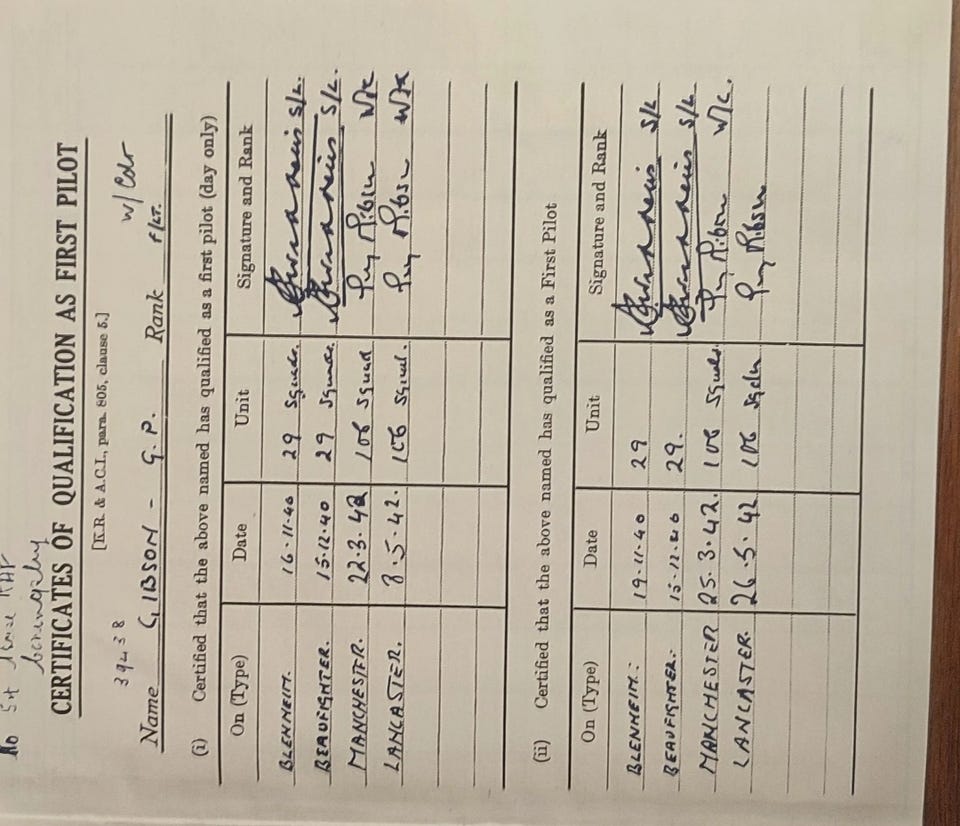 No
CERTIFICATES OF QUALIFICATION AS FIRST PILOT
[K.R. & A.C.I., para. 805, clause 5.]
39438 W/Cdr
Name GIBSON - G.P. Rank F/LT.
(i) Certified that the above named has qualified as a first pilot (day only)
On (Type) Date Unit Signature and Rank
BLENHEIM. 16.11.40 29 Squad. S/L.
BEAUFIGHTER. 15.12.40 29 Squad. S/L.
MANCHESTER. 22.3.42 106 Squad Guy Gibson W/C
LANCASTER. 8.5.42. 106 Squad. Guy Gibson W/C
(ii) Certified that the above named has qualified as a First Pilot
On (Type) Date Unit Signature and Rank
BLENHEIM: 19.11.40 29 S/L
BEAUFIGHTER: 15.12.40 29. S/L
MANCHESTER 25.3.42. 106 Squdn Guy Gibson W/C.
LANCASTER. 26.5.42 106 Sqdn Guy Gibson